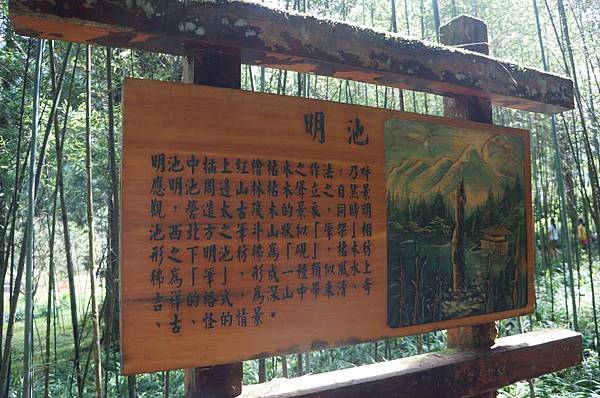 明池
明池中插上紅檜枯木之作法，乃呼
應明池周邊山林枯木聳立之自然景
觀，營造太古殘木的景象，同時明
池西北方之筆斗山狀似「筆架」相
形之下明池彷彿為「硯」，枯木彷
彿為「筆」，形成一種類似風水上
吉祥的格式，為深山中帶來清、奇
、古、怪的情景。